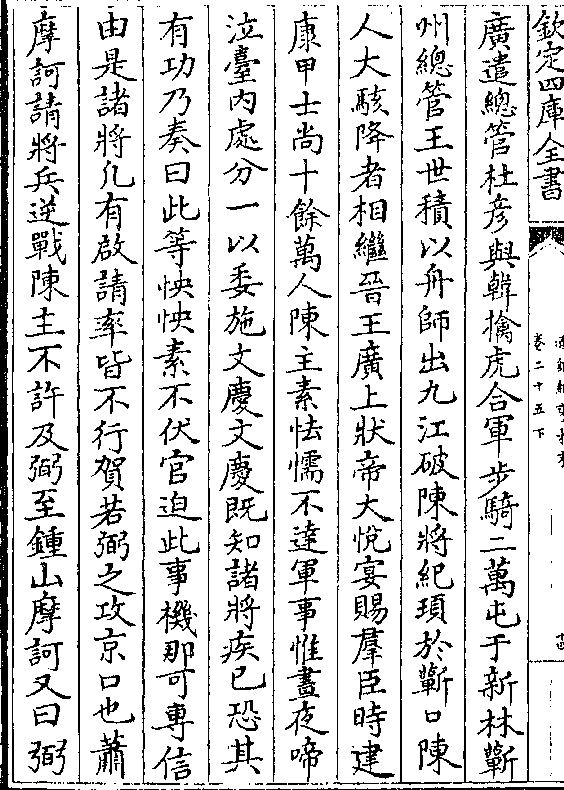 欽定四庫全書
卷二十五下
廣遣總管杜彦與韓擒虎合軍步騎二萬屯于新林蘄
州總管王世積以舟師出九江破陳將紀瑱於蘄口陳
人大駭降者相繼晉王廣上狀帝大悦宴賜羣臣時建
康甲士尚十餘萬人陳主素怯懦不達軍事惟晝夜啼
泣臺内處分一以委施文慶文慶既知諸將疾已恐其
有功乃奏曰此等怏怏素不伏官迫此事機那可專信
由是諸將凡有啟請率皆不行賀若弼之攻京口也蕭
摩訶請將兵逆戰陳主不許及弼至鍾山摩訶又曰弼